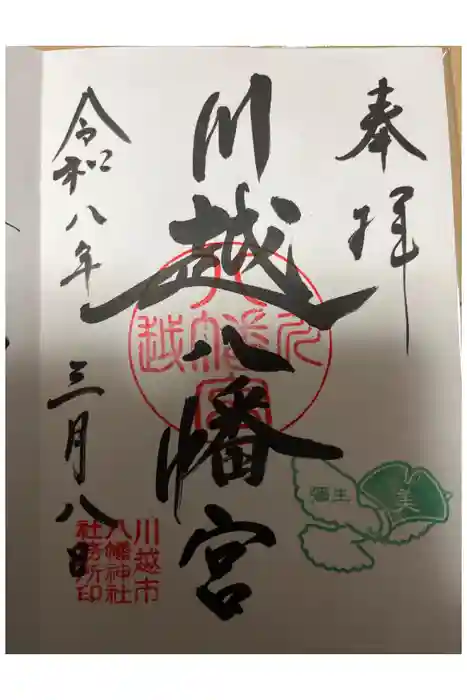 奉拝
川越八幡宮
令和八年
三月八日
川越八幡宮
川越市
八幡神社
社務所印
弥生
美